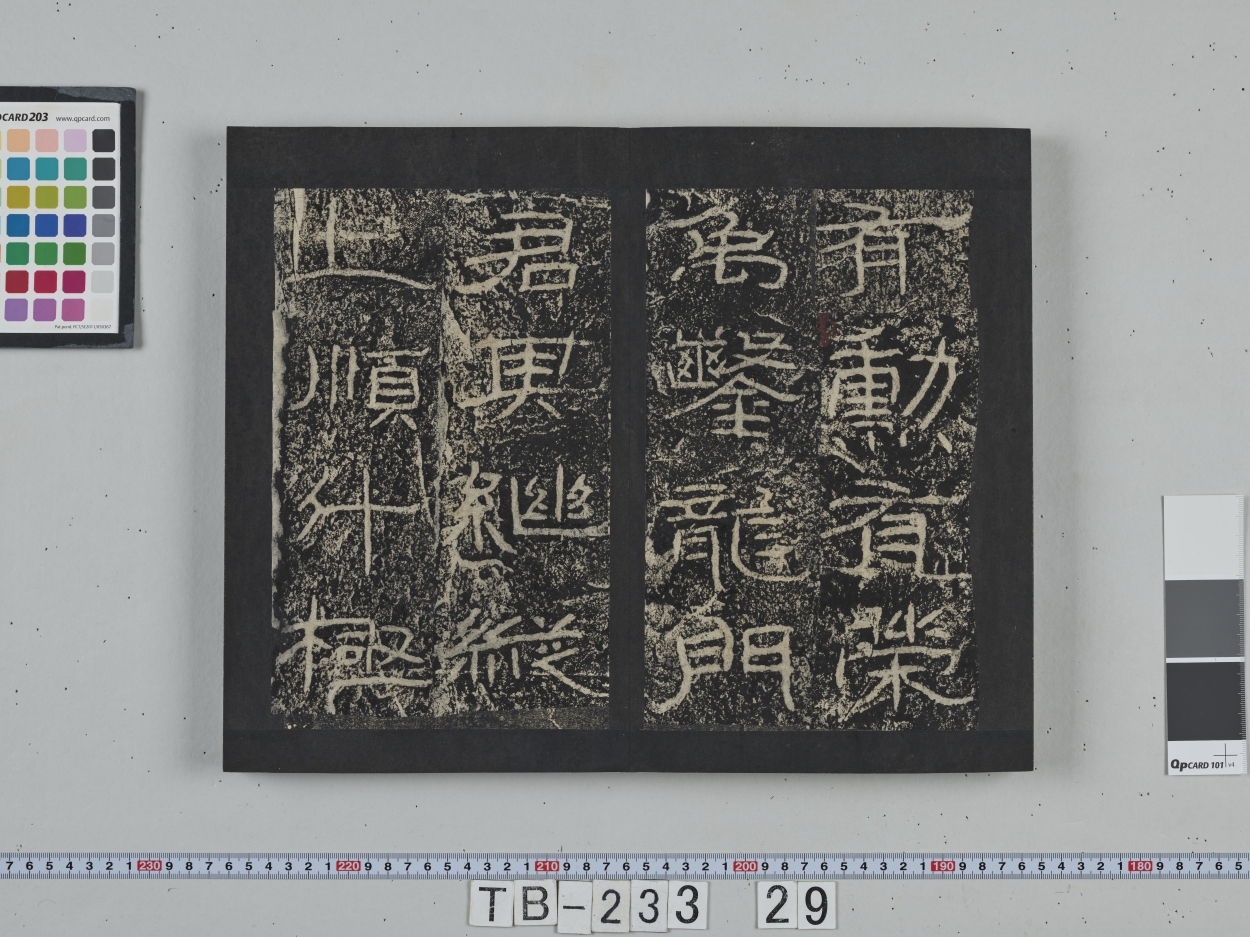 有勳宜榮
禹鑿龍門
君其繼縱
上順斗極
QPCARD 203 www.qpcard.com
QPCARD 101 v4
7 6 5 4 3 2 1 230 9 8 7 6 5 4 3 2 1 220 9 8 7 6 5 4 3 2 1 210 9 8 7 6 5 4 3 2 1 200 9 8 7 6 5 4 3 2 1 190 9 8 7 6 5 4 3 2 1 180 9 8 7 6 5
TB-233 29